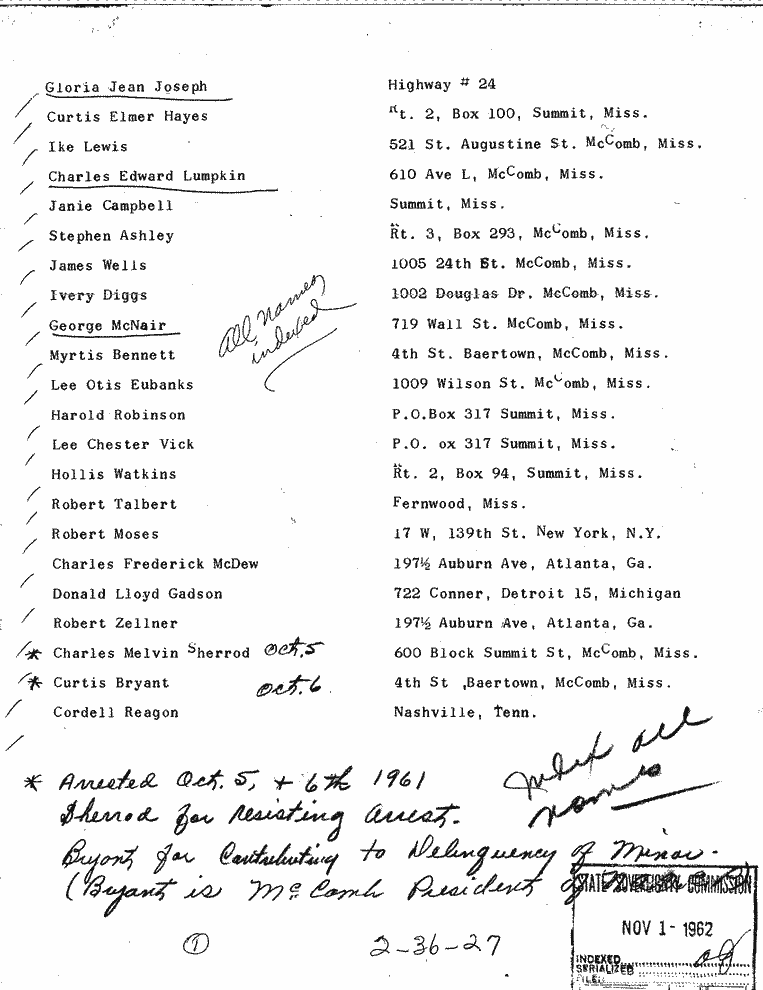 Gloria Jean Joseph Highway # 24
Curtis Elmer Hayes Rt. 2, Box 100, Summit, Miss.
Ike Lewis 521 St. Augustine St. McComb, Miss.
Charles Edward Lumpkin 610 Ave L, McComb, Miss.
Janie Campbell Summit, Miss.
Stephen Ashley Rt. 3, Box 293, McComb, Miss.
James Wells 1005 24th St. McComb, Miss.
Ivery Diggs 1002 Douglas Dr. McComb, Miss.
All names
indexed
George McNair 719 Wall St. McComb, Miss.
Myrtis Bennett 4th St. Baertown, McComb, Miss.
Lee Otis Eubanks 1009 Wilson St. McComb, Miss.
Harold Robinson P.O.Box 317 Summit, Miss.
Lee Chester Vick P.O. ox 317 Summit, Miss.
Hollis Watkins Rt. 2, Box 94, Summit, Miss.
Robert Talbert Fernwood, Miss.
Robert Moses 17 W, 139th St. New York, N.Y.
Charles Frederick McDew 197½ Auburn Ave, Atlanta, Ga.
Donald Lloyd Gadson 722 Conner, Detroit 15, Michigan
Robert Zellner 197½ Auburn Ave, Atlanta, Ga.
* Charles Melvin Sherrod Oct. 5 600 Block Summit St, McComb, Miss.
* Curtis Bryant Oct. 6 4th St ,Baertown, McComb, Miss.
Cordell Reagon Nashville, Tenn.
Index all
names
* Arrested Oct. 5, + 6th 1961
Sherrod for resisting arrest.
Bryant for Contributing to Delinquency of Minor.
(Bryant is McComb President of
STATE SOVEREIGNTY COMMISSION
NOV 1 - 1962
INDEXED
SERIALIZED
FILE
① 2-36-27